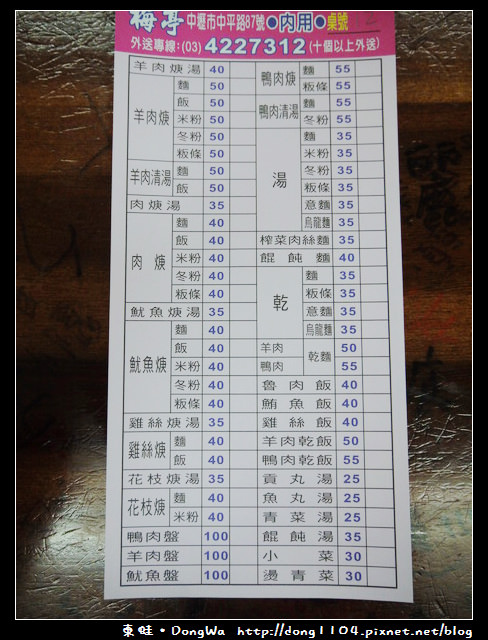 梅亭 中壢市中平路87號●內用●桌號
外送專線:(03)4227312(十個以上外送)
羊肉焿湯 40
羊肉焿 麵 50
飯 50
米粉 50
冬粉 50
粄條 50
羊肉清湯 麵 50
飯 50
肉焿湯 35
肉焿 麵 40
飯 40
米粉 40
冬粉 40
粄條 40
魷魚焿湯 35
魷魚焿 麵 40
飯 40
米粉 40
冬粉 40
粄條 40
雞絲焿湯 35
雞絲焿 麵 40
飯 40
花枝焿湯 35
花枝焿 麵 40
米粉 40
鴨肉盤 100
羊肉盤 100
魷魚盤 100
鴨肉焿 麵 55
粄條 55
鴨肉清湯 麵 55
冬粉 55
湯 麵 35
米粉 35
冬粉 35
粄條 35
意麵 35
烏龍麵 35
榨菜肉絲麵 35
餛飩麵 40
乾 麵 35
粄條 35
意麵 35
烏龍麵 35
羊肉 乾麵 50
鴨肉 55
魯肉飯 40
鮪魚飯 40
雞絲飯 40
羊肉乾飯 50
鴨肉乾飯 55
貢丸湯 25
魚丸湯 25
青菜湯 25
餛飩湯 35
小菜 30
燙青菜 30
東蛙·DongWa http://dong1104.pixnet.net/blog